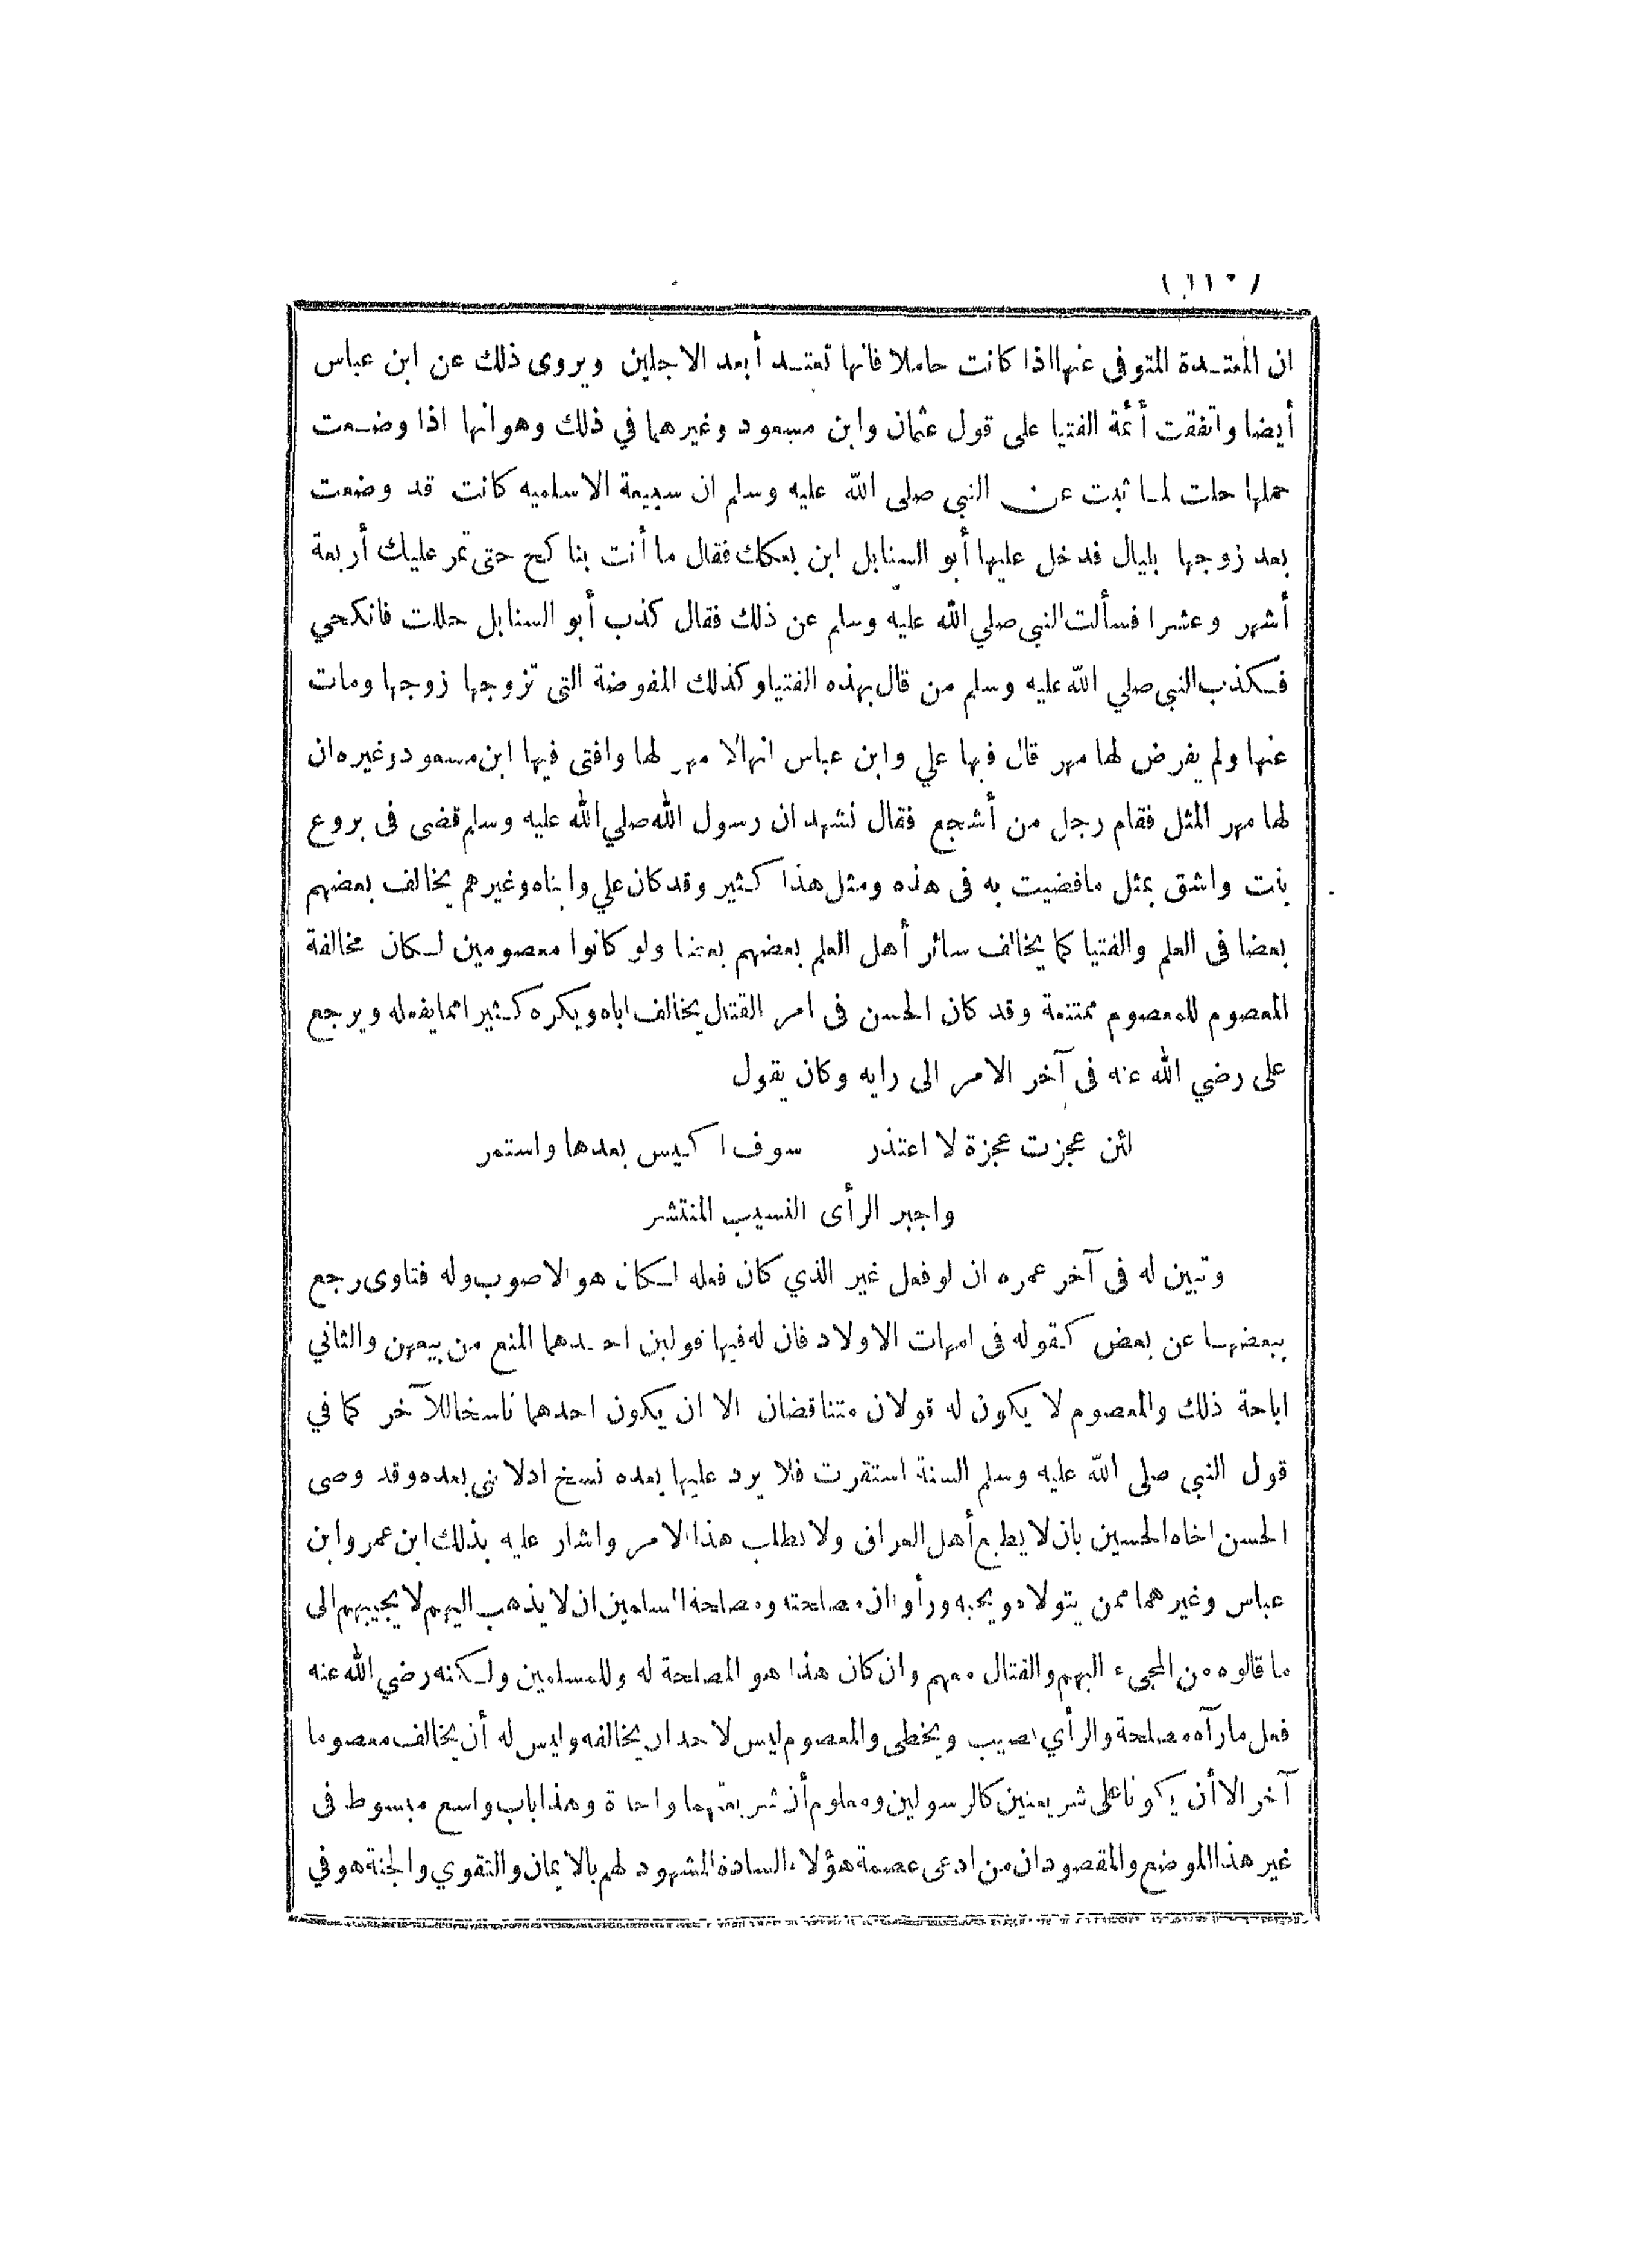 ان المعتدة المتوفى عنها اذا كانت حاملا فانها تعتد أبعد الاجلين ويروى ذلك عن ابن عباس
أيضا واتفقت أئمة الفتيا على قول عثمان وابن مسعود وغيرهما في ذلك وهو انها اذا وضعت
حملها حلت لما ثبت عن النبي صلى الله عليه وسلم ان سبيعة الاسلميه كانت قد وضعت
بعد زوجها بليال فدخل عليها أبو السنابل ابن بعكك فقال ما أنت بناكح حتى تمر عليك أربعة
أشهر وعشرا فسألت النبي صلي الله عليه وسلم عن ذلك فقال كذب أبو السنابل حللت فانكحي
فكذب النبي صلي الله عليه وسلم من قال بهذه الفتيا وكذلك المفوضة التى تزوجها زوجها ومات
عنها ولم يفرض لها مهر قال فيها علي وابن عباس انها لا مهر لها وافتى فيها ابن مسعود وغيره ان
لها مهر المثل فقام رجل من أشجع فقال نشهد ان رسول الله صلي الله عليه وسلم قضى فى بروع
بنت واشق بمثل ماقضيت به فى هذه ومثل هذا كثير وقد كان علي وابناه وغيرهم يخالف بعضهم
بعضا فى العلم والفتيا كما يخالف سائر أهل العلم بعضهم بعضا ولو كانوا معصومين لكان مخالفة
المعصوم للمعصوم ممتنعة وقد كان الحسن فى امر القتال يخالف اباه ويكره كثيرا مما يفعله ويرجع
على رضي الله عنه فى آخر الامر الى رايه وكان يقول
لئن عجزت عجزة لا اعتذر سوف اكيس بعدها واستمر
واجبر الرأى النسيب المنتشر
وتبين له فى آخر عمره ان لو فعل غير الذي كان فعله لكان هو الاصوب وله فتاوى رجع
ببعضها عن بعض كقوله فى امهات الاولاد فان له فيها قولين احدهما المنع من بيعهن والثاني
اباحة ذلك والمعصوم لا يكون له قولان متناقضان الا ان يكون احدهما ناسخا للآخر كما في
قول النبي صلى الله عليه وسلم السنة استقرت فلا يرد عليها بعده نسخ اذ لا نبي بعده وقد وصى
الحسن اخاه الحسين بان لا يطيع أهل العراق ولا يطلب هذا الامر واشار عليه بذلك ابن عمر وابن
عباس وغيرهما ممن يتولاه ويحبه ورأوا ان مصلحته ومصلحة المسلمين ان لا يذهب اليهم لا يجيبهم الى
ما قالوه من المجىء اليهم والقتال معهم وان كان هذا هو المصلحة له وللمسلمين ولكنه رضي الله عنه
فعل مارآه مصلحة والرأي يصيب ويخطى والمعصوم ليس لاحد ان يخالفه وليس له أن يخالف معصوما
آخر الا أن يكونا على شريعتين كالرسولين ومعلوم أن شريعتهما واحدة وهذا باب واسع مبسوط فى
غير هذا الموضع والمقصود ان من ادعى عصمة هؤلاء السادة المشهود لهم بالايمان والتقوي والجنة هو في